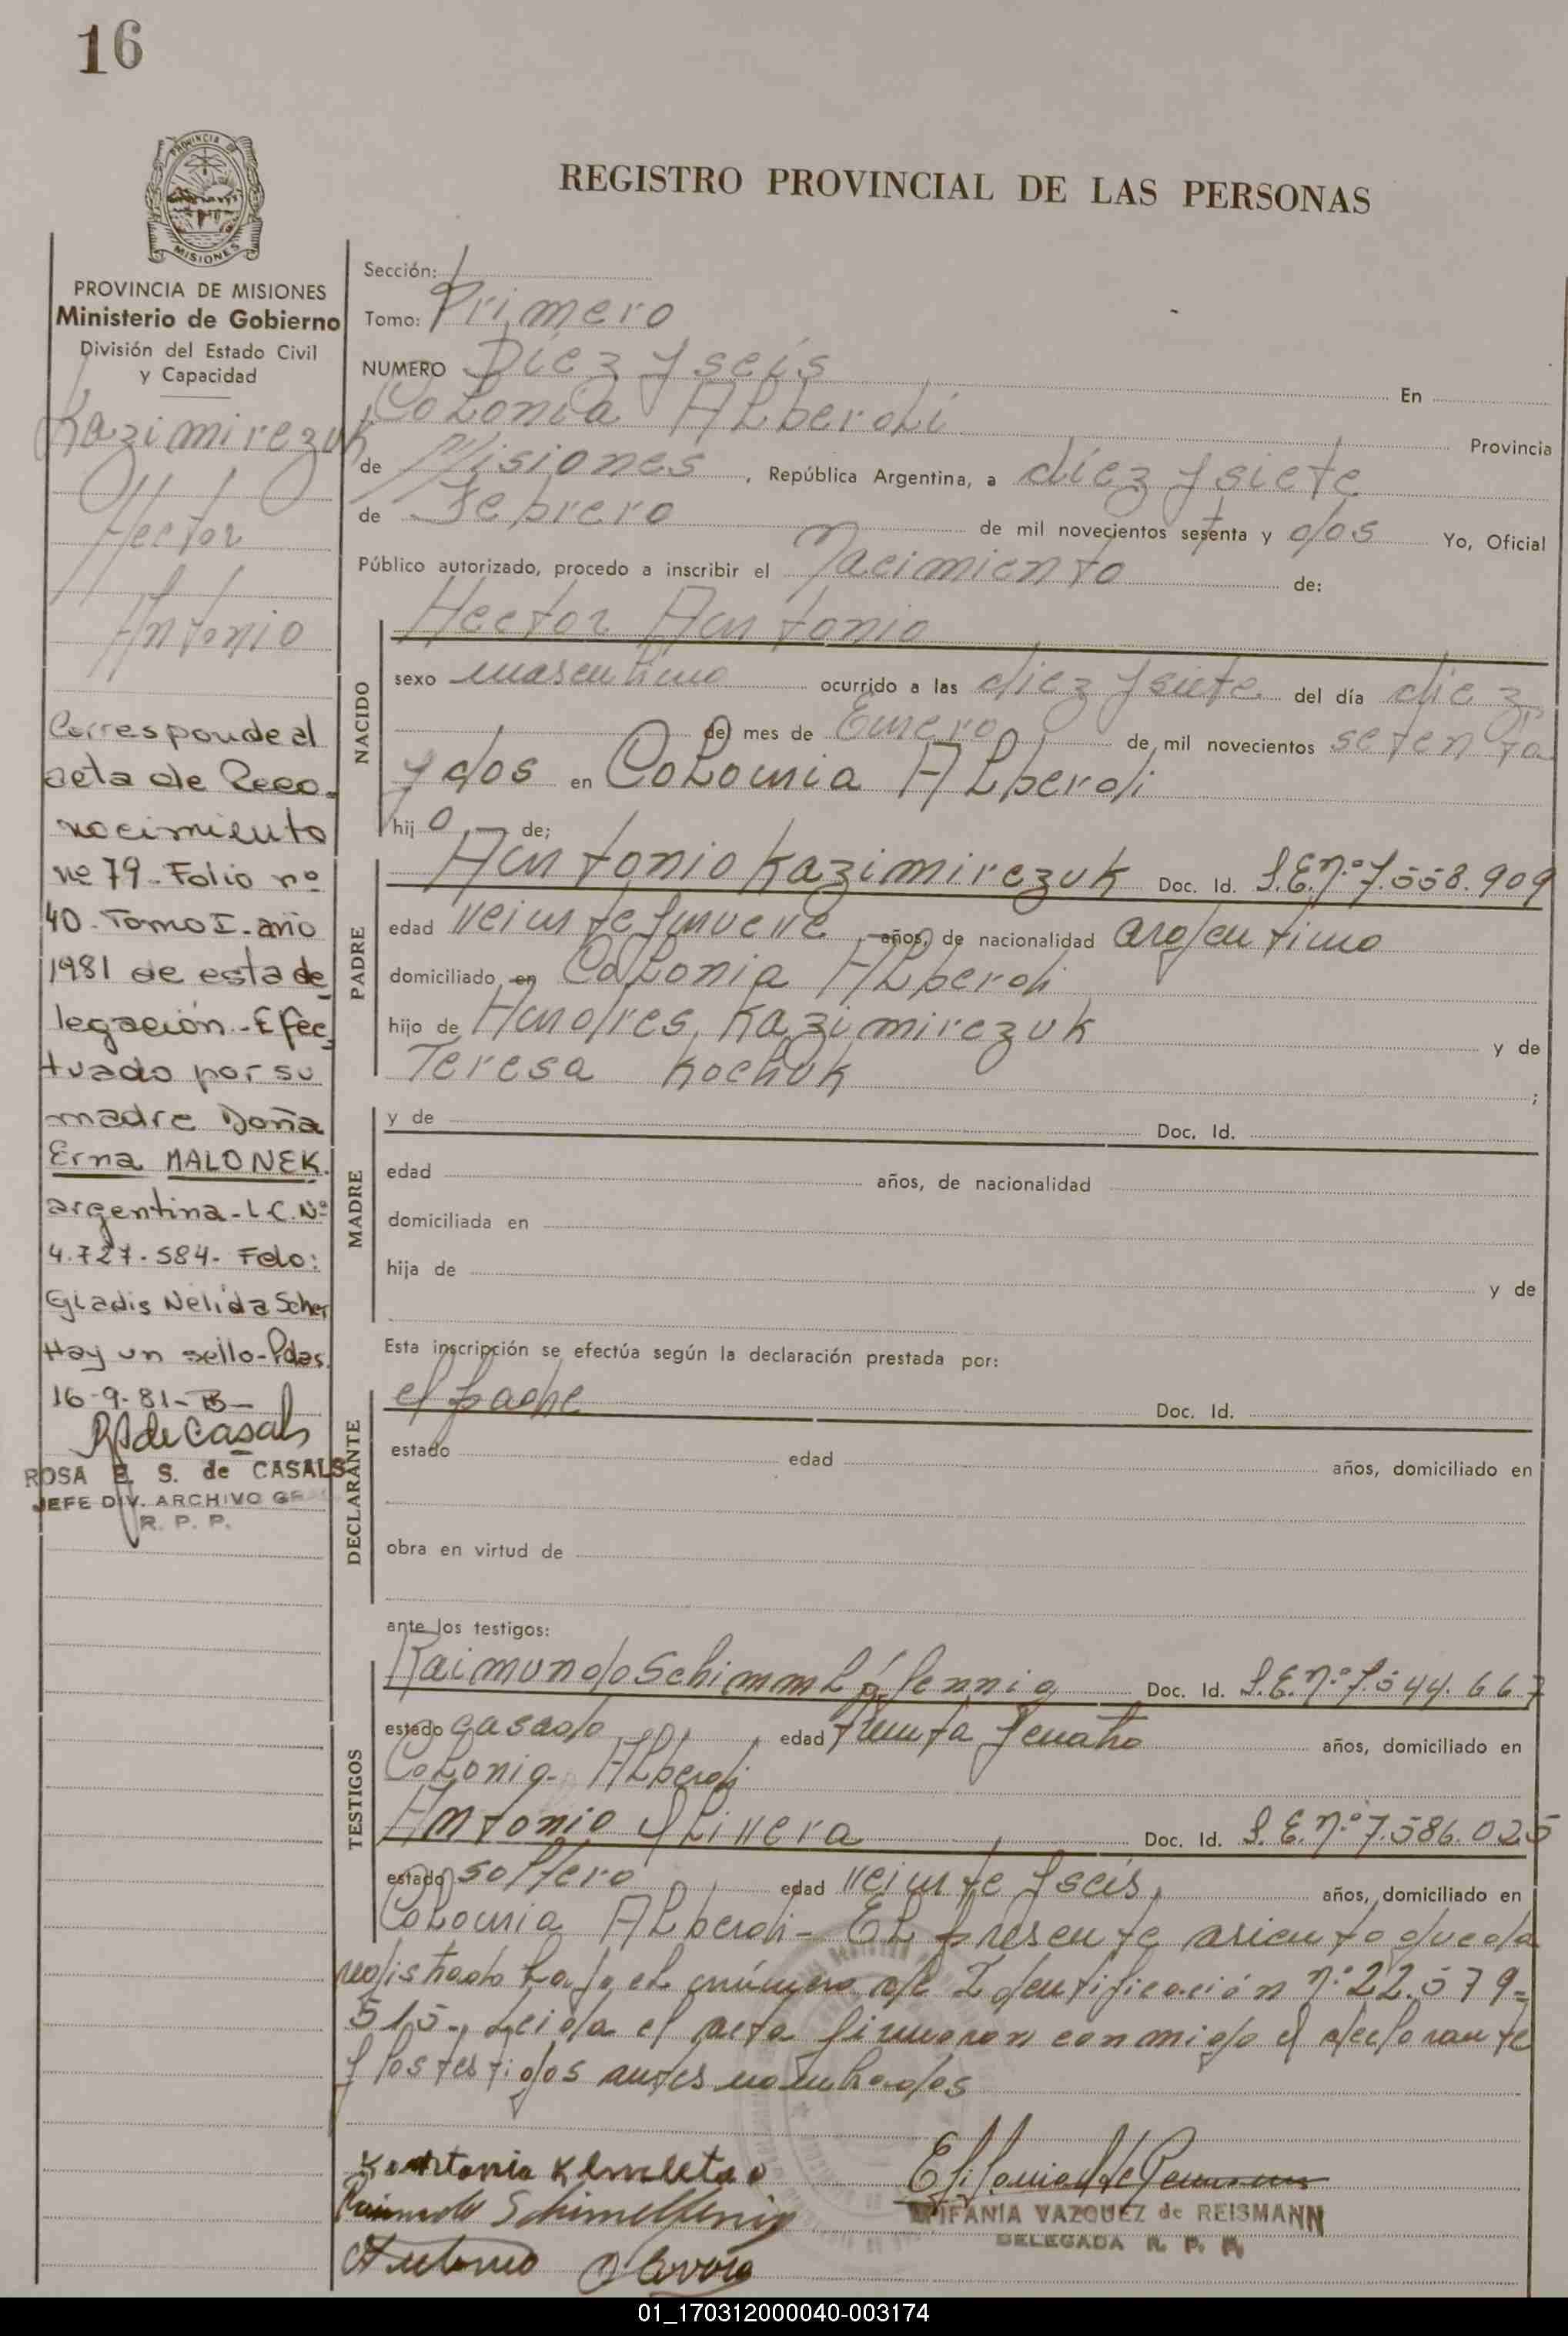 16
PROVINCIA DE
MISIONES
REGISTRO PROVINCIAL DE LAS PERSONAS
PROVINCIA DE MISIONES
Ministerio de Gobierno
División del Estado Civil
y Capacidad
Kazimirezuk
Hector
Antonio
Corresponde al
acta de Reco-
nocimiento
nº 79- Folio nº
40- Tomo I- año
1981 de esta de
legación.- Efec
tuado por su
madre Doña
Erna MALONEK.
argentina- L.C. Nº
4.727.584- Fdo:
Gladis Nelida Scher
Hay un sello- Pdas.
16-9-81-
RS de Casals
ROSA E. S. de CASALS
JEFE DIV. ARCHIVO
R. P. P.
Sección:
Tomo: Primero
NUMERO Diez y seis En
Colonia Alberdi Provincia
de Misiones, República Argentina, a diez y siete
de Febrero de mil novecientos setenta y dos Yo, Oficial
Público autorizado, procedo a inscribir el Nacimiento de:
NACIDO
Hector Antonio
sexo masculino ocurrido a las diez y siete del día diez
del mes de Enero de mil novecientos setenta
y dos en Colonia Alberdi
hijo de;
PADRE
Antonio Kazimirezuk Doc. Id. L.E. n.º 7.558.909
edad veinte y nueve años, de nacionalidad argentino
domiciliado en Colonia Alberdi
hijo de Andres Kazimirezuk y de
Teresa Kochuk ;
MADRE
y de Doc. Id.
edad años, de nacionalidad
domiciliada en
hija de y de
Esta inscripción se efectúa según la declaración prestada por:
DECLARANTE
el padre Doc. Id.
estado edad años, domiciliado en
obra en virtud de
ante los testigos:
TESTIGOS
Raimundo Schimmlpfennig Doc. Id. L.E. n.º 7.544.667
estado casado edad treinta y cuatro años, domiciliado en
Colonia Alberdi
Antonio Olivera Doc. Id. L.E. n.º 7.586.025
estado soltero edad veinte y seis, años, domiciliado en
Colonia Alberdi- El presente asiento queda
registrado bajo el número de Identificación n.º 22.579-
515-, Leida el acta firmaron conmigo el declarante
y los testigos antes nombrados
EPIFANIA VAZQUEZ de REISMANN
DELEGADA R. P. P.
01_170312000040-003174